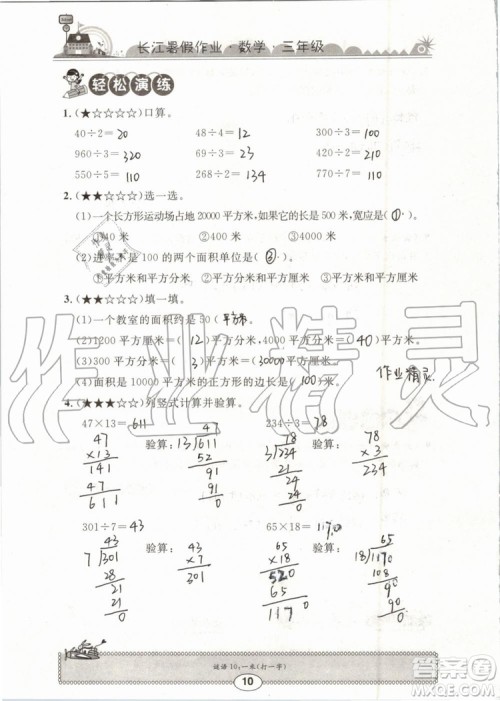 长江暑假作业·数学·三年级
轻松演练
1.(★☆☆☆☆)口算。
40÷2= 20 48÷4= 12 300÷3= 100
960÷3= 320 69÷3= 23 420÷2= 210
550÷5= 110 268÷2= 134 770÷7= 110
2.(★★☆☆☆)选一选。
(1)一个长方形运动场占地 20000 平方米,如果它的长是 500 米,宽应是( ① )。
①40 米 ②400 米 ③4000 米
(2)进率不是 100 的两个面积单位是( ② )。
①平方米和平方分米 ②平方米和平方厘米 ③平方分米和平方厘米
3.(★★☆☆☆)填一填。
(1)一个教室的面积约是 50( 平方米 )。
(2)1200 平方厘米=( 12 )平方分米 4000 平方分米=( 40 )平方米
(3)300 平方分米=( 3 )平方米=( 30000 )平方厘米
(4)面积是 10000 平方米的正方形的边长是( )米。
作业精灵
4.(★★★☆☆)列竖式计算并验算。
47×13= 611 234÷3= 78
47 验算: 47 78 验算: 78
×13 13 611 3 234 ×3
141 52 21 234
47 91 24
611 91 24
0 0
301÷7= 43 65×18= 1170
43 验算: 43 65 验算: 65
7 301 ×7 ×18 18 1170
28 301 520 108
21 65 90
21 1170 90
0 0
谜语 10:一来(打一字)
10
作业精灵